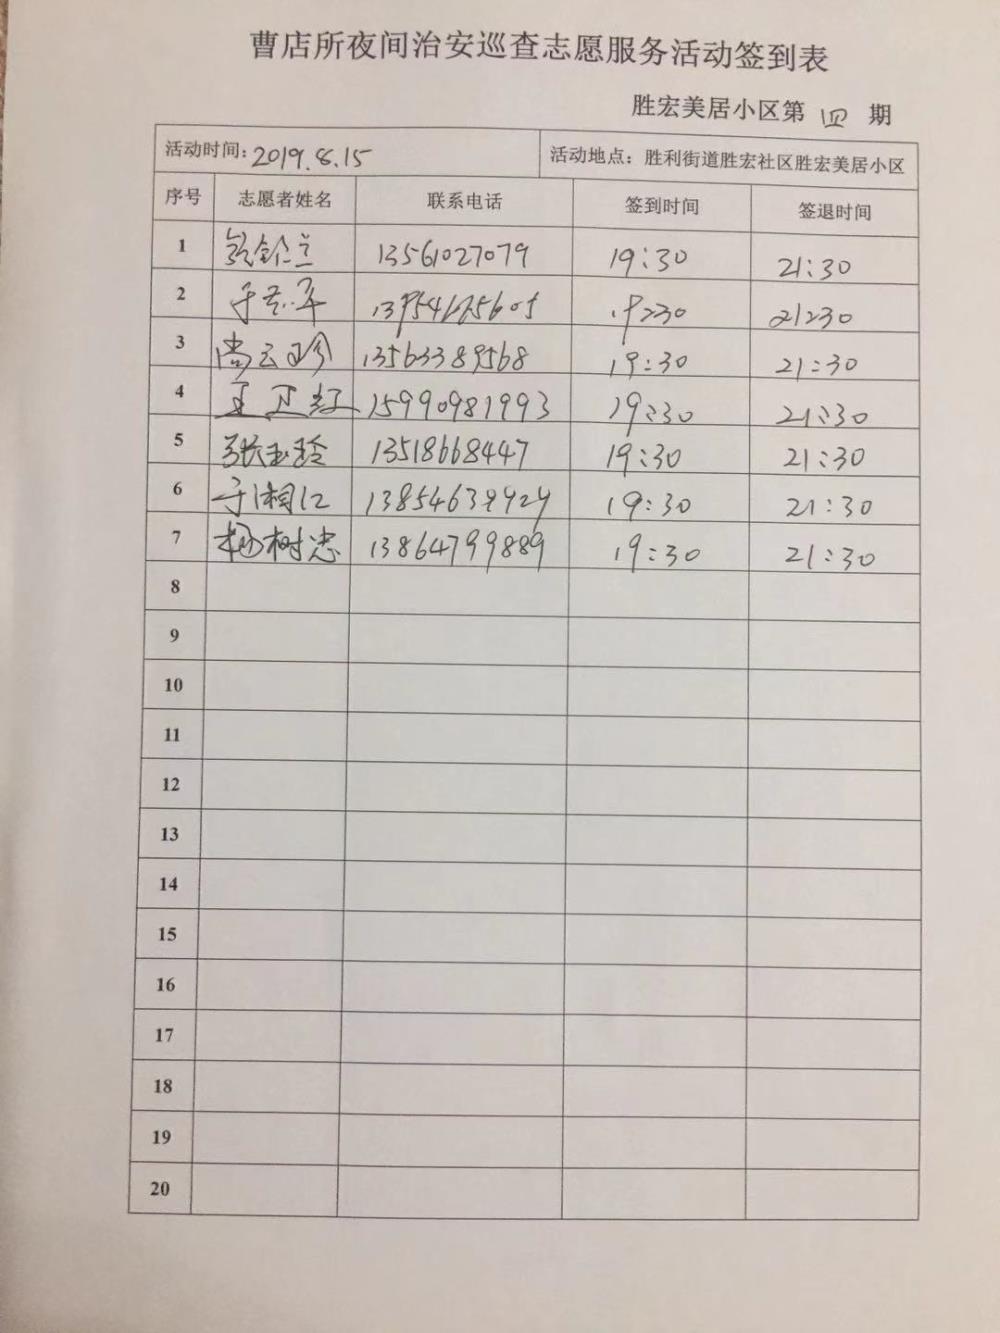 曹店所夜间治安巡查志愿服务活动签到表
胜宏美居小区第 四 期
活动时间: 2019.8.15 活动地点：胜利街道胜宏社区胜宏美居小区
序号 志愿者姓名 联系电话 签到时间 签退时间
1 13561027079 19:30 21:30
2 19:30 21:30
3 尚云珍 13563389568 19:30 21:30
4 王卫红 15990981993 19:30 21:30
5 张玉玲 13518668447 19:30 21:30
6 于湘江 19:30 21:30
7 杨树忠 13864799889 19:30 21:30
8
9
10
11
12
13
14
15
16
17
18
19
20